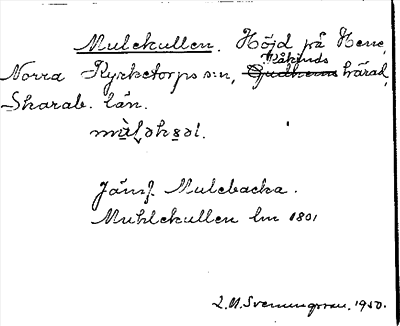 Mulekullen. Höjd på Hene,
Norra Kyrketorps s:n, Gudhems Wåkinds härad,
Skarab. län.
Jämf. Mulebacka.
Muhlekullen lm 1801
1950.